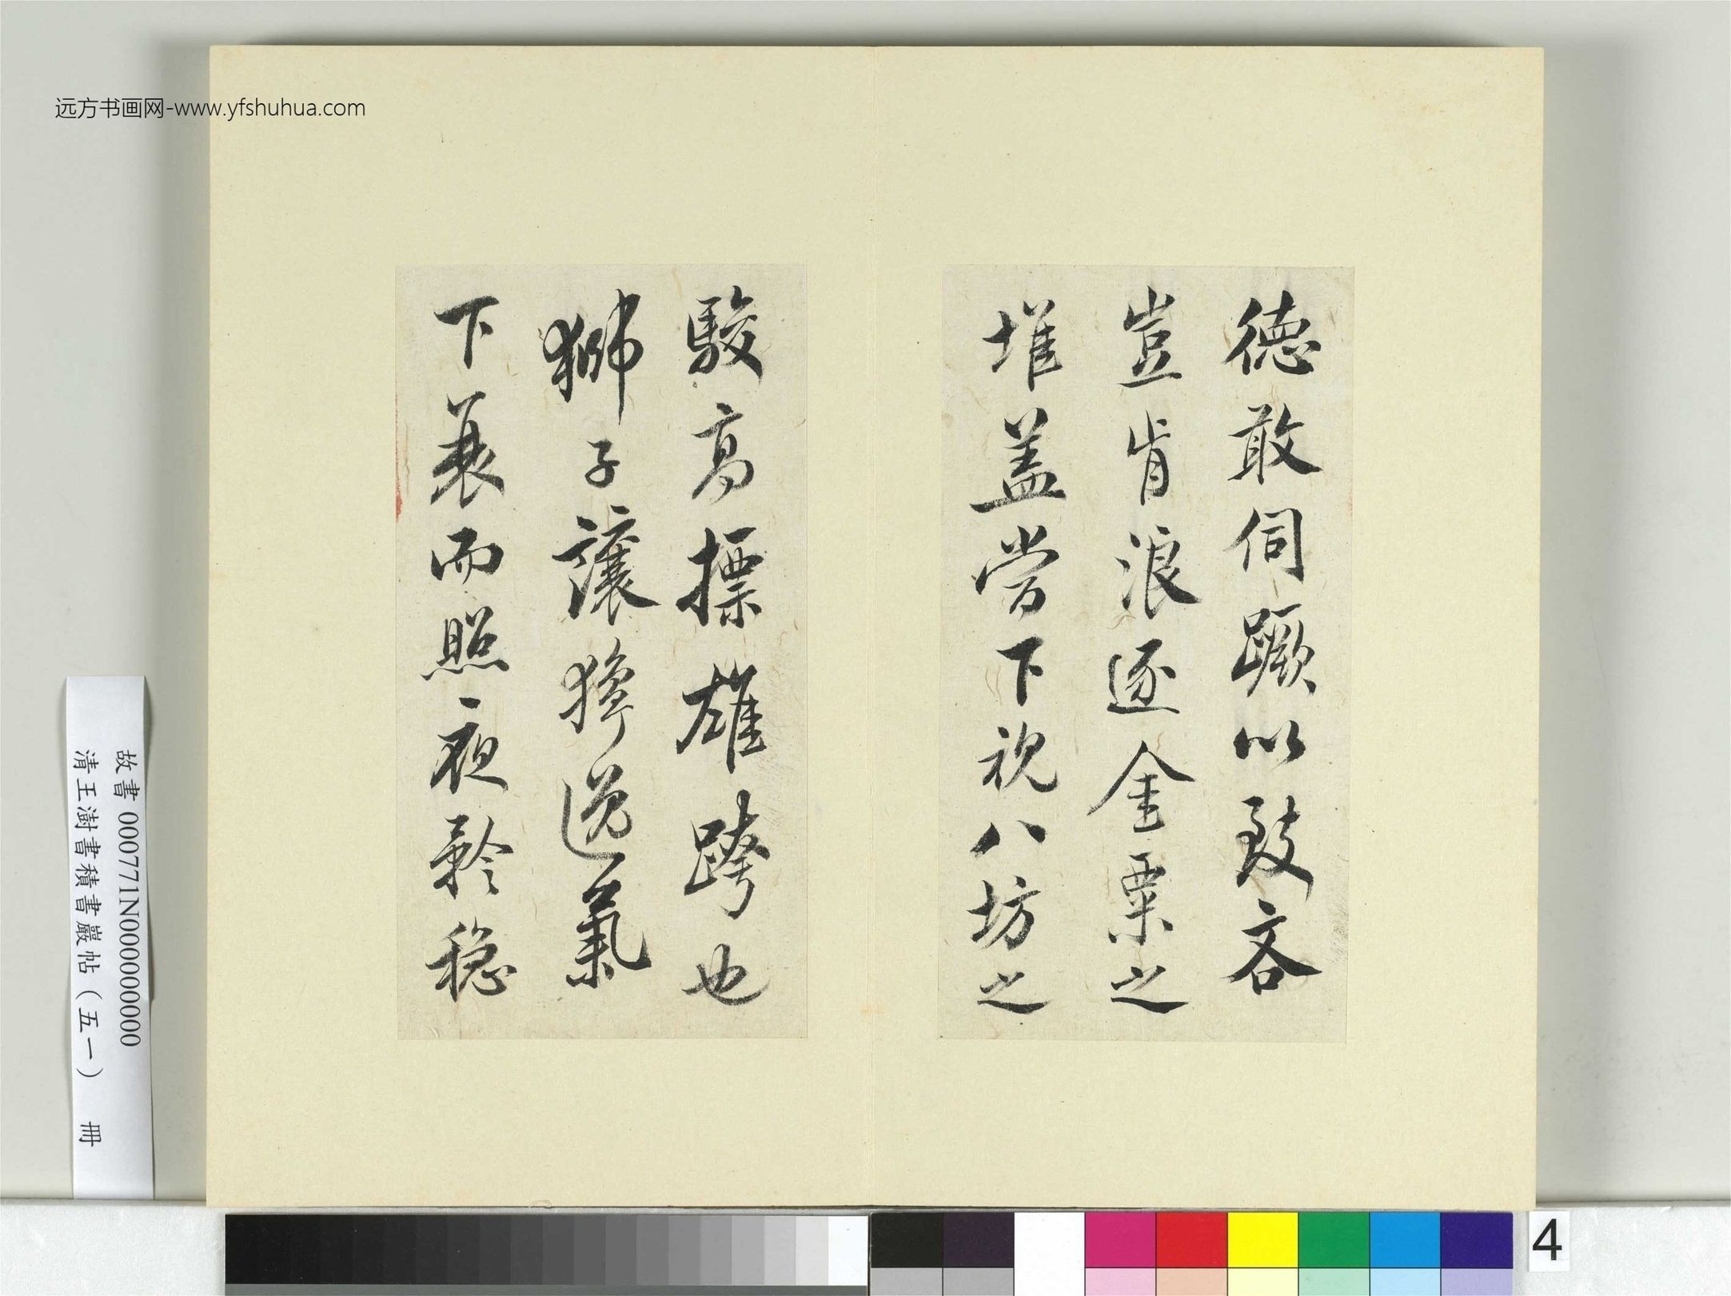 远方书画网-www.yfshuhua.com
德敢伺蹶以致吝
豈肯浪逐金粟之
堆盖嘗下視八坊之
駿高摽雄跨也
獅子讓獰逸氣
下衰而照夜矜穏
故書 000771N000000000
清王澍書積書巖帖（五一） 冊
4